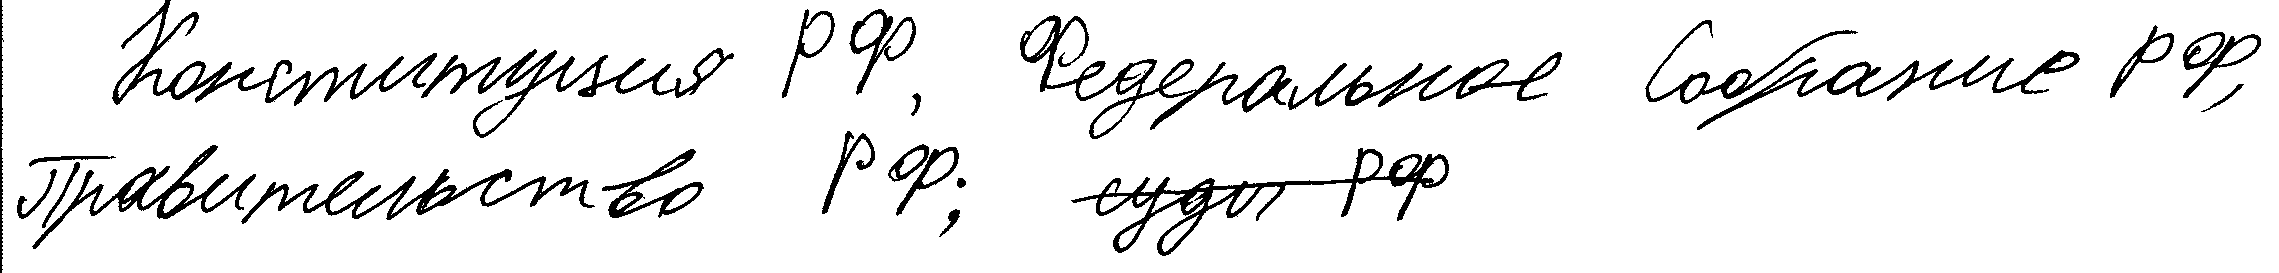 Конституция РФ, Федеральное Собрание РФ,
Правительство РФ; суды РФ